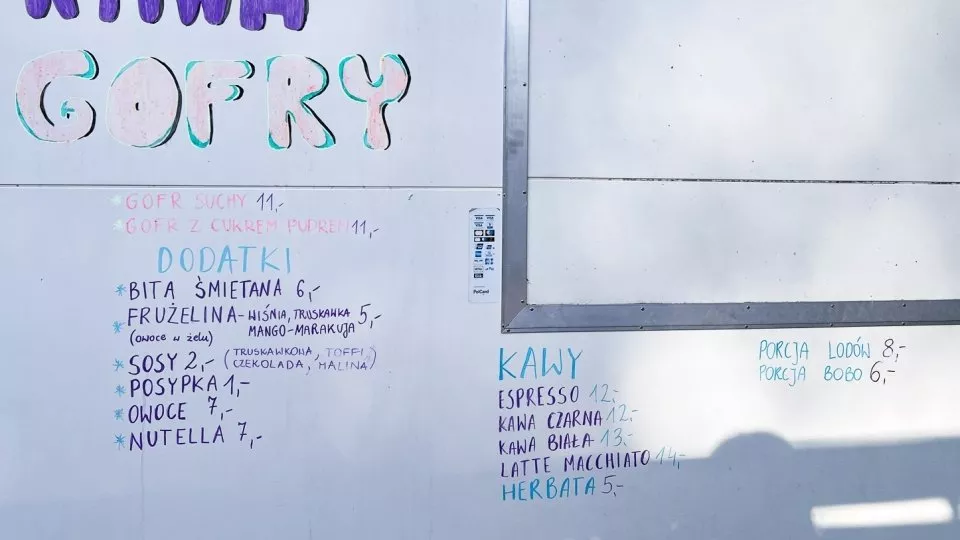 KAWA
GOFRY
* GOFR SUCHY 11,-
* GOFR Z CUKREM PUDREM 11,-
DODATKI
* BITA ŚMIETANA 6,-
* FRUŻELINA - WIŚNIA, TRUSKAWKA 5,-
(owoce w żelu) MANGO-MARAKUJA
* SOSY 2,- (TRUSKAWKOWA, TOFFI,
CZEKOLADA, MALINA)
* POSYPKA 1,-
* OWOCE 7,-
* NUTELLA 7,-
PolCard
KAWY
ESPRESSO 12,-
KAWA CZARNA 12,-
KAWA BIAŁA 13,-
LATTE MACCHIATO 14,-
HERBATA 5,-
PORCJA LODÓW 8,-
PORCJA BOBO 6,-